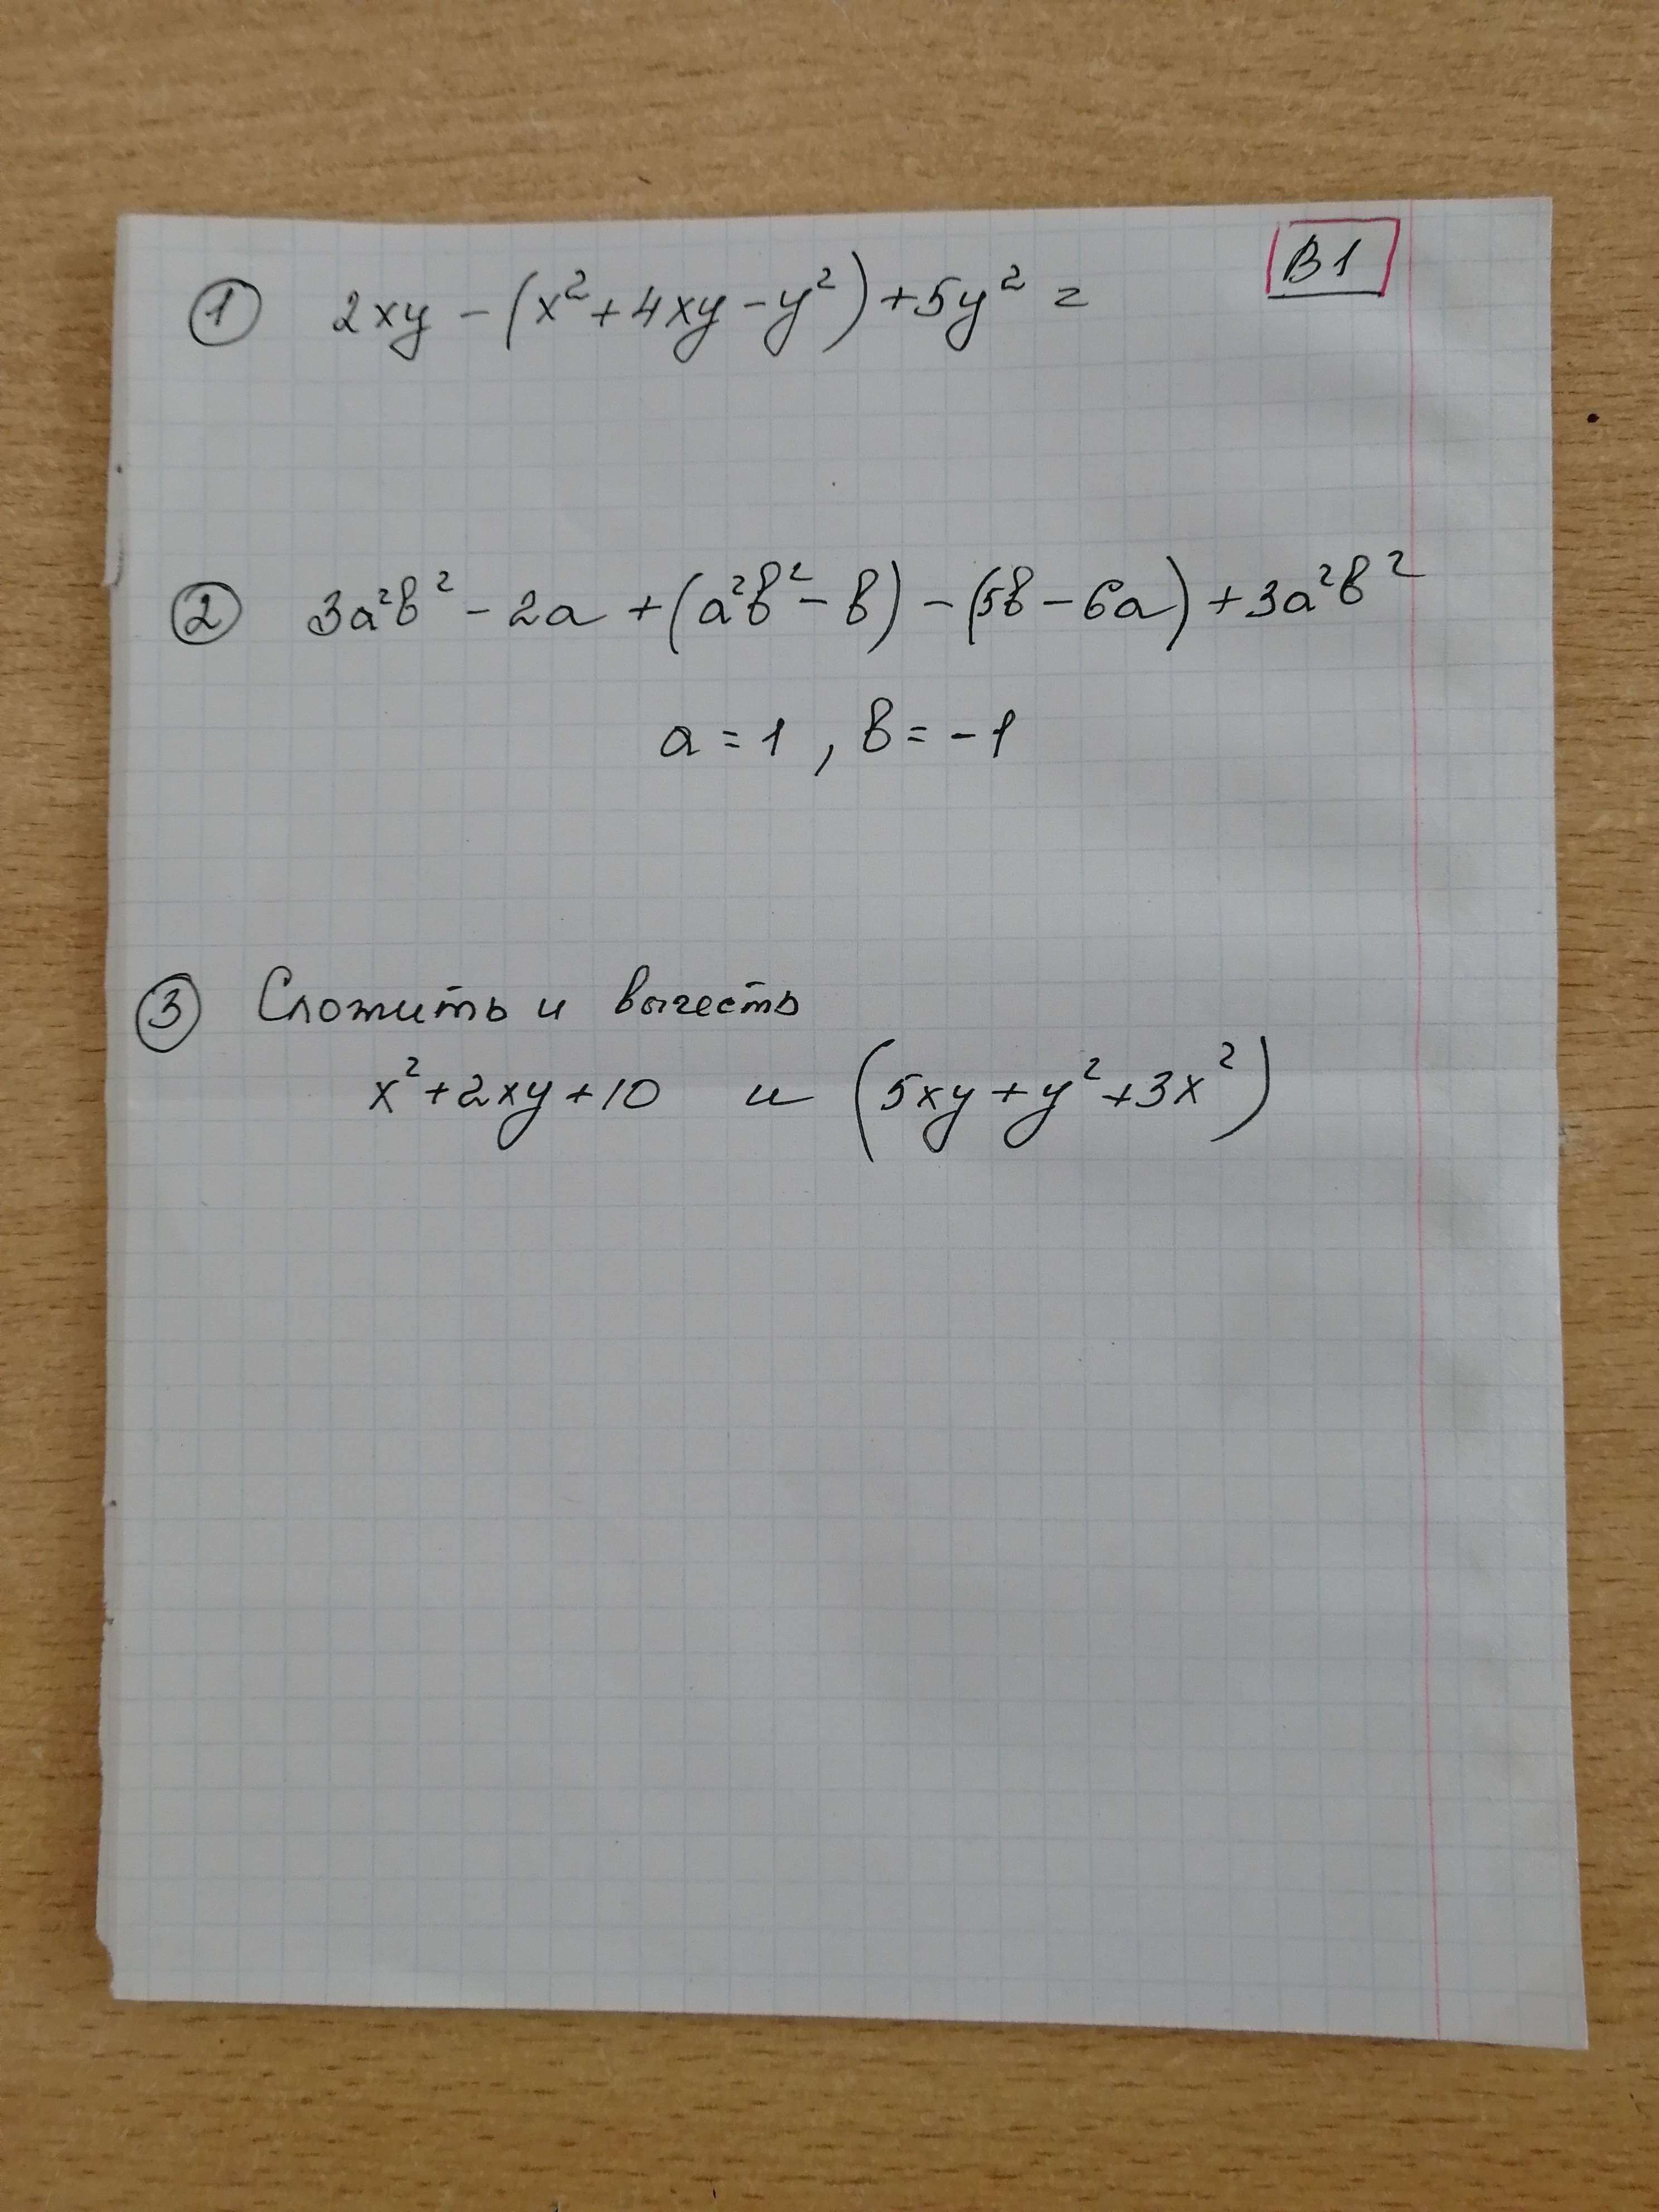 В1
① 2xy - (x² + 4xy - y²) + 5y² =
② 3a²b² - 2a + (a²b² - b) - (5b - 6a) + 3a²b²
a = 1 , b = -1
③ Сложить и вычесть
x² + 2xy + 10 и (5xy + y² + 3x²)